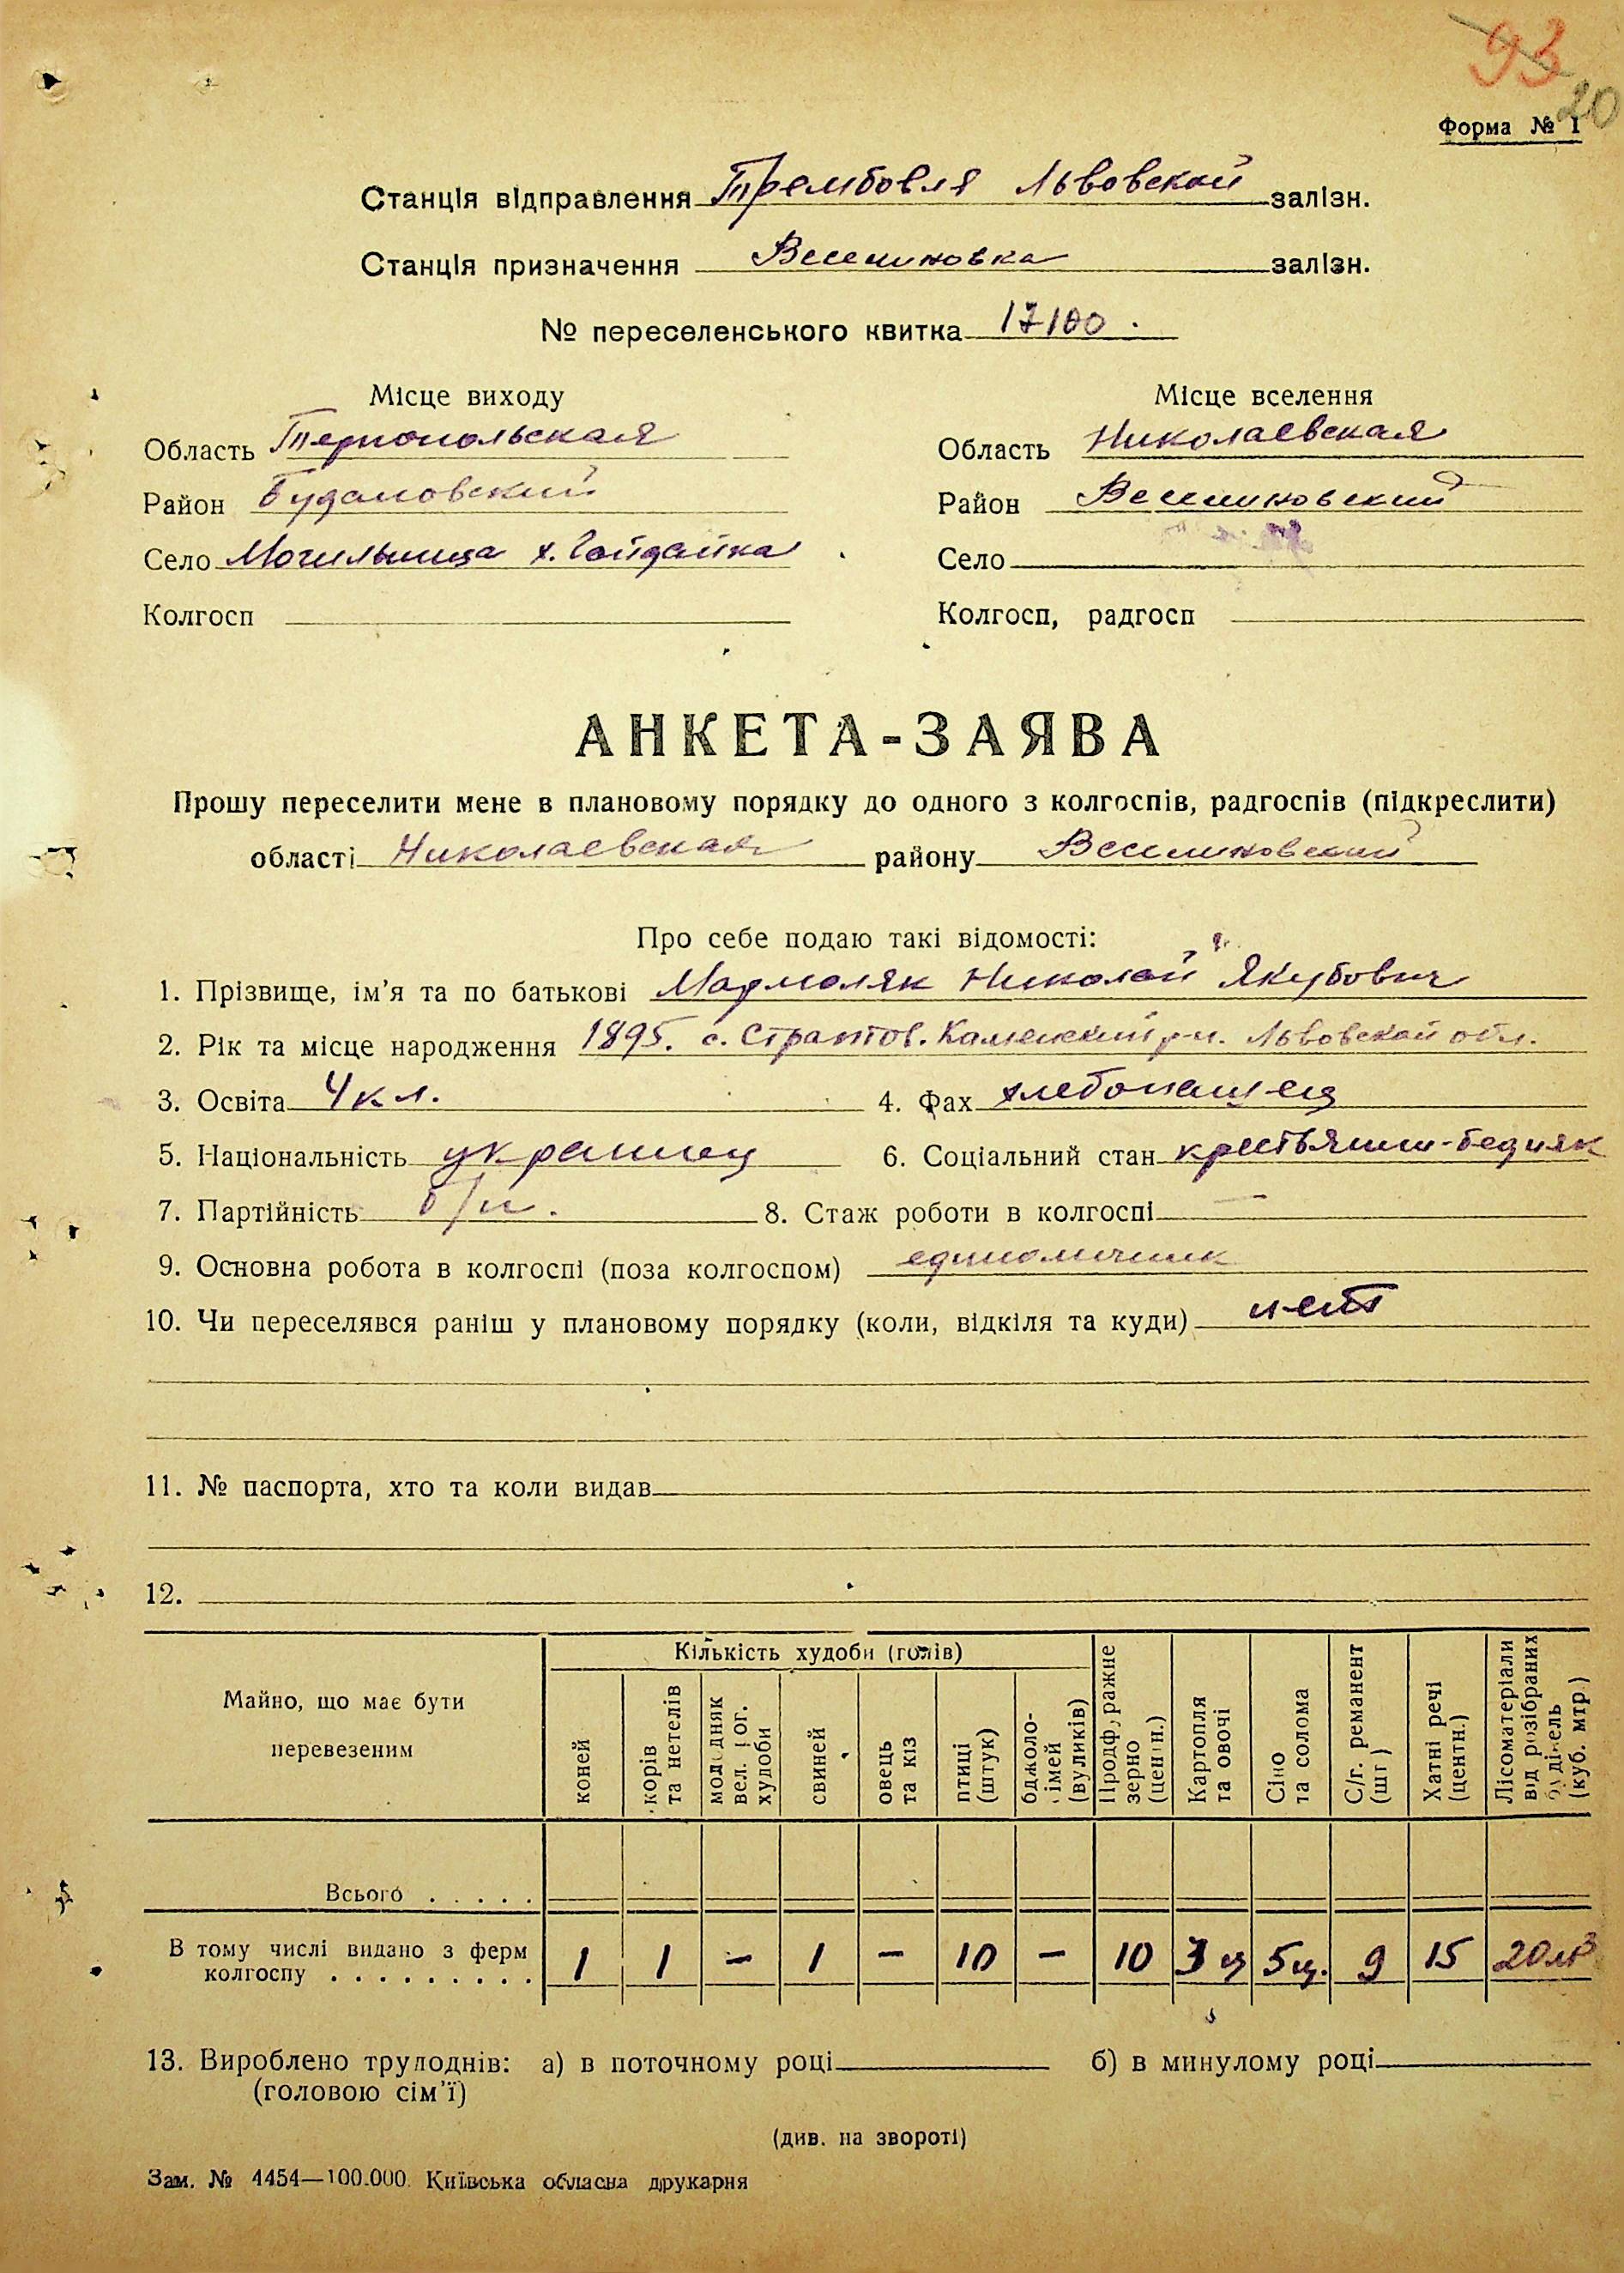 93
20
Форма № 1
Станція відправлення Трембовля Львовской залізн.
Станція призначення Веселиновка залізн.
№ переселенського квитка 17100.
Місце виходу
Місце вселення
Область Тернопольская
Область Николаевская
Район Будановский
Район Веселиновский
Село Могильница х. Гайдайка
Село
Колгосп
Колгосп, радгосп
АНКЕТА-ЗАЯВА
Прошу переселити мене в плановому порядку до одного з колгоспів, радгоспів (підкреслити)
області Николаевская району Веселиновский
Про себе подаю такі відомості:
1. Прізвище, ім'я та по батькові Мармоляк Николай Якубович
2. Рік та місце народження 1895. с. Страттов. Каменский р-н. Львовской обл.
3. Освіта 4 кл. 4. Фах хлебопашец
5. Національність украинец 6. Соціальний стан крестьянин-бедняк
7. Партійність б/п. 8. Стаж роботи в колгоспі —
9. Основна робота в колгоспі (поза колгоспом) единоличник
10. Чи переселявся раніш у плановому порядку (коли, відкіля та куди) нет
11. № паспорта, хто та коли видав
12.
Майно, що має бути
перевезеним
Кількість худоби (голів)
коней
корів
та нетелів
молодняк
вел. рог.
худоби
свиней
овець
та кіз
птиці
(штук)
бджоло-
сімей
(вуликів)
Продфуражне
зерно
(центн.)
Картопля
та овочі
Сіно
та солома
С/г. реманент
(шт.)
Хатні речі
(центн.)
Лісоматеріали
від розібраних
будівель
(куб. мтр.)
Всього . . . . .
В тому числі видано з ферм
колгоспу . . . . . . . . . 1 1 – 1 – 10 – 10 3 ц 5 ц. 9 15 20 м³
13. Вироблено трудоднів: а) в поточному році б) в минулому році
(головою сім'ї)
(див. на звороті)
Зам. № 4454—100.000. Київська обласна друкарня